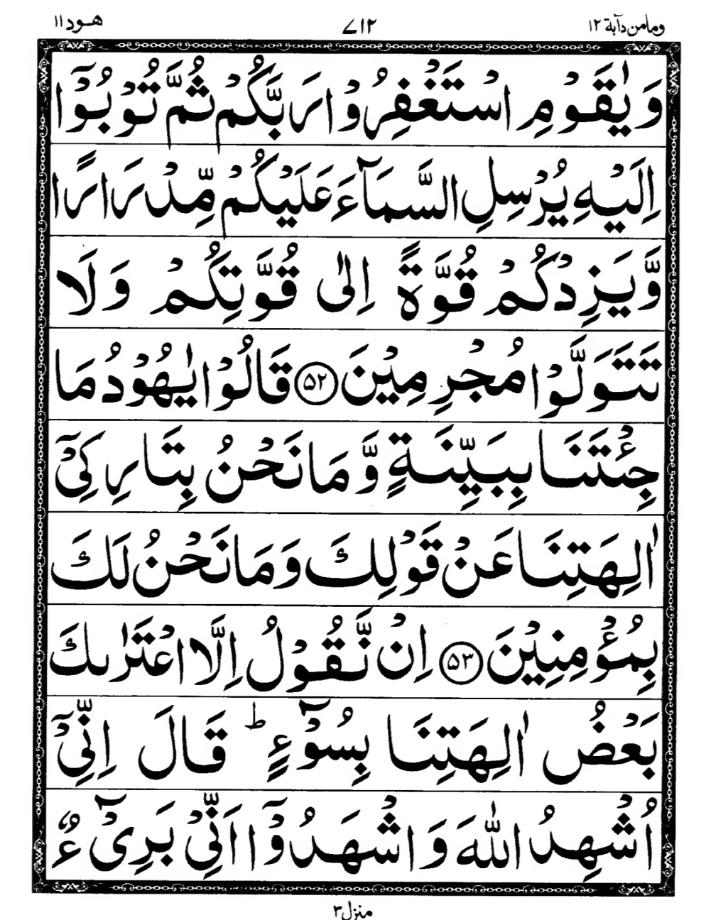 وما من دآبة ۱۲
۷۱۲
هود ۱۱
وَ یٰقَوْمِ اسْتَغْفِرُوْا رَبَّكُمْ ثُمَّ تُوْبُوْۤا
اِلَیْهِ یُرْسِلِ السَّمَآءَ عَلَیْكُمْ مِّدْرَارًا
وَّ یَزِدْكُمْ قُوَّةً اِلٰى قُوَّتِكُمْ وَ لَا
تَتَوَلَّوْا مُجْرِمِیْنَ ﴿۵۲﴾ قَالُوْا یٰهُوْدُ مَا
جِئْتَنَا بِبَیِّنَةٍ وَّ مَا نَحْنُ بِتَارِكِیْۤ
اٰلِهَتِنَا عَنْ قَوْلِكَ وَ مَا نَحْنُ لَكَ
بِمُؤْمِنِیْنَ ﴿۵۳﴾ اِنْ نَّقُوْلُ اِلَّا اعْتَرٰىكَ
بَعْضُ اٰلِهَتِنَا بِسُوْٓءٍ ؕ قَالَ اِنِّیْۤ
اُشْهِدُ اللّٰهَ وَ اشْهَدُوْۤا اَنِّیْ بَرِیْٓءٌ
منزل ۳